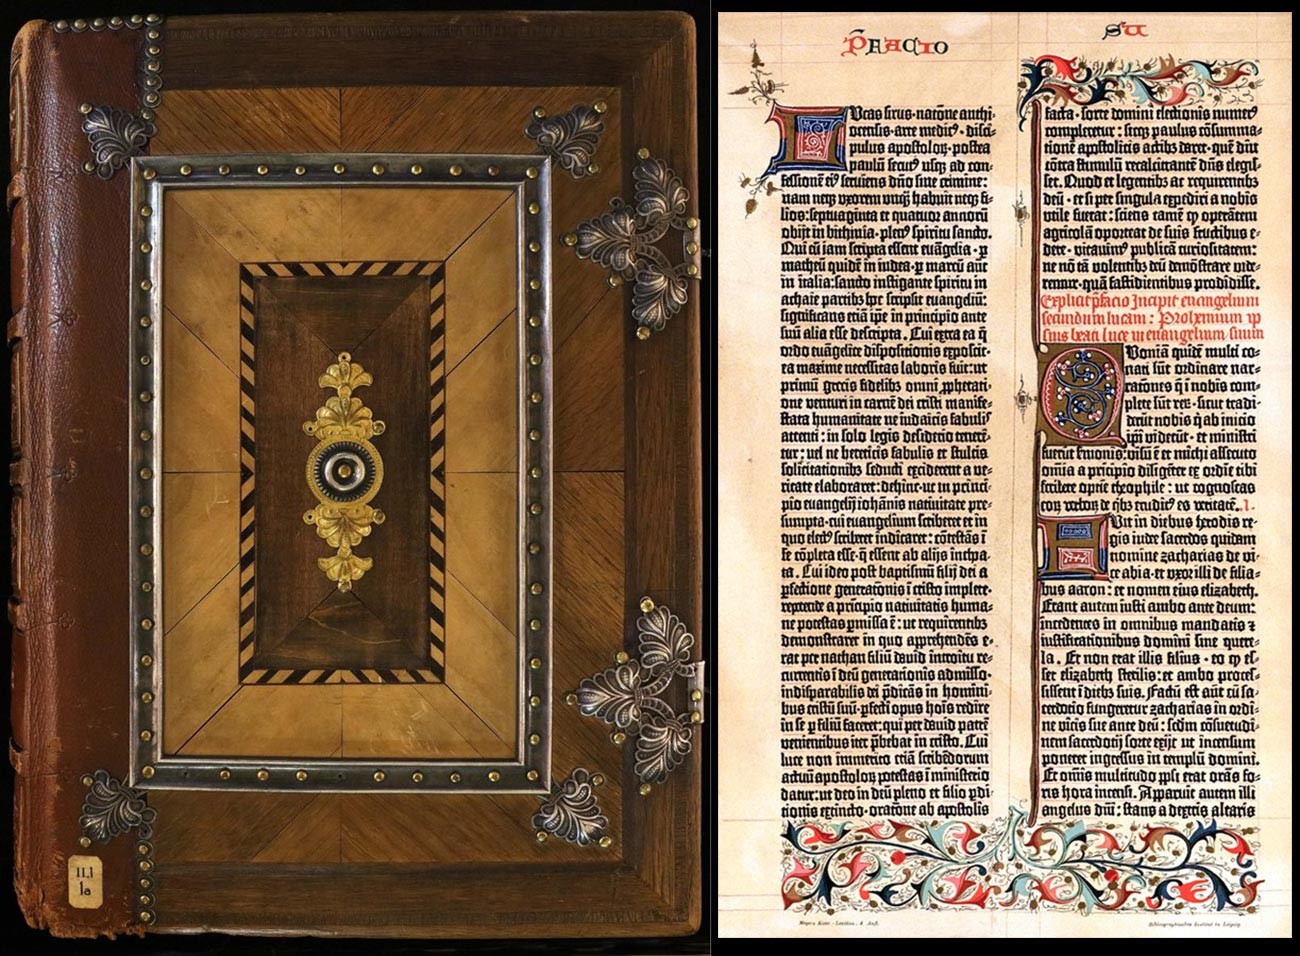 II,1
1a
P̄FACIO
SU
Lucas sirus·natōne anthi-
ocensis·arte medic9·disci-
pulus apostoloꝝ·postea
paulū secut9 usqꝫ ad con-
fessionē ei9 serviens dño sine crimine:
nam neqꝫ uxorem unqꝫ habuit neqꝫ fi-
lios: septuaginta et quatuor annorū
obijt in bithinia·plen9 spiritu sancto.
Qui cū iam scripta essent euāgelia·ꝑ
matheū quidē in iudea·ꝑ marcū aūt
in italia: sancto instigante spiritu in
achaie partibꝫ hoc scripsit euangeliū:
significans etiā ipē in principio ante
suū alia esse descripta. Cui extra ea q̄
ordo euāgelice dispositionis exposcit·
ea maxime necessitas laboris fuit: ut
primū grecis fidelibꝫ omni ꝓphetati-
one venturi in carnē dei cristi manife-
stata humanitate ne iudaicis fabulis
attenti: in solo legis desiderio tenerē-
tur: vel ne hereticis fabulis et stultis
solicitationibꝫ seducti exciderent a ve-
ritate elaboraret: dehinc·ut in princi-
pio euangelij iohānis nativitate pre-
sumpta·cui euangelium scriberet et in
quo elect9 scriberet indicaret: cōtestās ī
se cōpleta esse·q̄ essent ab alijs inchoa-
ta. Cui ideo post baptismū filij dei a
ꝑfectione generatōnis ī cristo implete·
repetende a pricipio nativitatis huma-
ne potestas ꝑmissa ē: ut requirentibꝫ
demonstraret in quo apprehendēs e-
rat per nathan filiū david introitu re-
currentis ī deū generationis admisso·
indisparabilis dei p̄dicās in homini-
bus cristū suū·ꝑfecti opus hois redire
in se ꝑ filiū faceret: qui per david patrē
venientibus iter p̄bebat in cristo. Cui
luce non immerito etiā scribēdorum
actuū apostoloꝝ potestas ī ministerio
datur: ut deo in deū pleno et filio ꝓdi-
tionis extincto·oratōne ab apostolis
facta·sorte domini electionis numer9
completetur: sicqꝫ paulus cōsumma-
tionē apostolicis actibꝫ daret·quē diu
cōtra stimulū recalcitrantē dñs elegis-
set. Quod et legentibꝫ ac requirentibꝫ
deū·et si per singula expediri a nobis
utile fuerat: sciens tamē qꝫ operātem
agricolā oporteat de suis fructibus e-
dere·vitavim9 publicā curiositatem:
ne nō tā volentibꝫ deū demōstrare vide-
remur·quā fastidientibus prodidisse.
Explicit p̄facio Incipit euangelium
secundum lucam: Prohemium ip
sius beati luce in euangelium suum
Quoniā quidē multi co-
nati sūt ordinare nar-
ratōnes q̄ ī nobis com-
plete sūt reꝝ·sicut tradi-
derūt nobis q̇ ab inicio
ipi viderūt·et ministri
fuerūt smonis: visū ē et michi assecuto
omīa a principio diligēter ex ordīe tibi
scribere optīe theophile: ut cognoscas
eoꝝ verboꝝ de q̇bꝫ erudit9 es veritatē. I.
Fuit in diebus herodis re-
gis iude sacerdos quidam
nomine zacharias de vi-
ce abia·et uxor illi de filia-
bus aaron: et nomen eius elizabeth.
Erant autem iusti ambo ante deum:
incedentes in omnibus mandatis et
iustificationibus domini sine quere-
la. Et non erat illis filius·eo qꝫ es-
set elizabeth sterilis: et ambo proces-
sissent ī diebꝫ suis. Factū est aūt cū sa-
cerdotio fungeretur zacharias in ordi-
ne vicis sue ante deū: scdm cōsuetudi-
nem sacerdotij sorte exijt ut incensum
poneret ingressus in templū domini.
Et omīs multitudo ppli erat orās fo-
ris hora incensi. Apparuit autem illi
angelus dñi: stans a dextris altaris
Meyers Konv.-Lexikon, 4. Aufl.
Bibliographisches Institut in Leipzig.